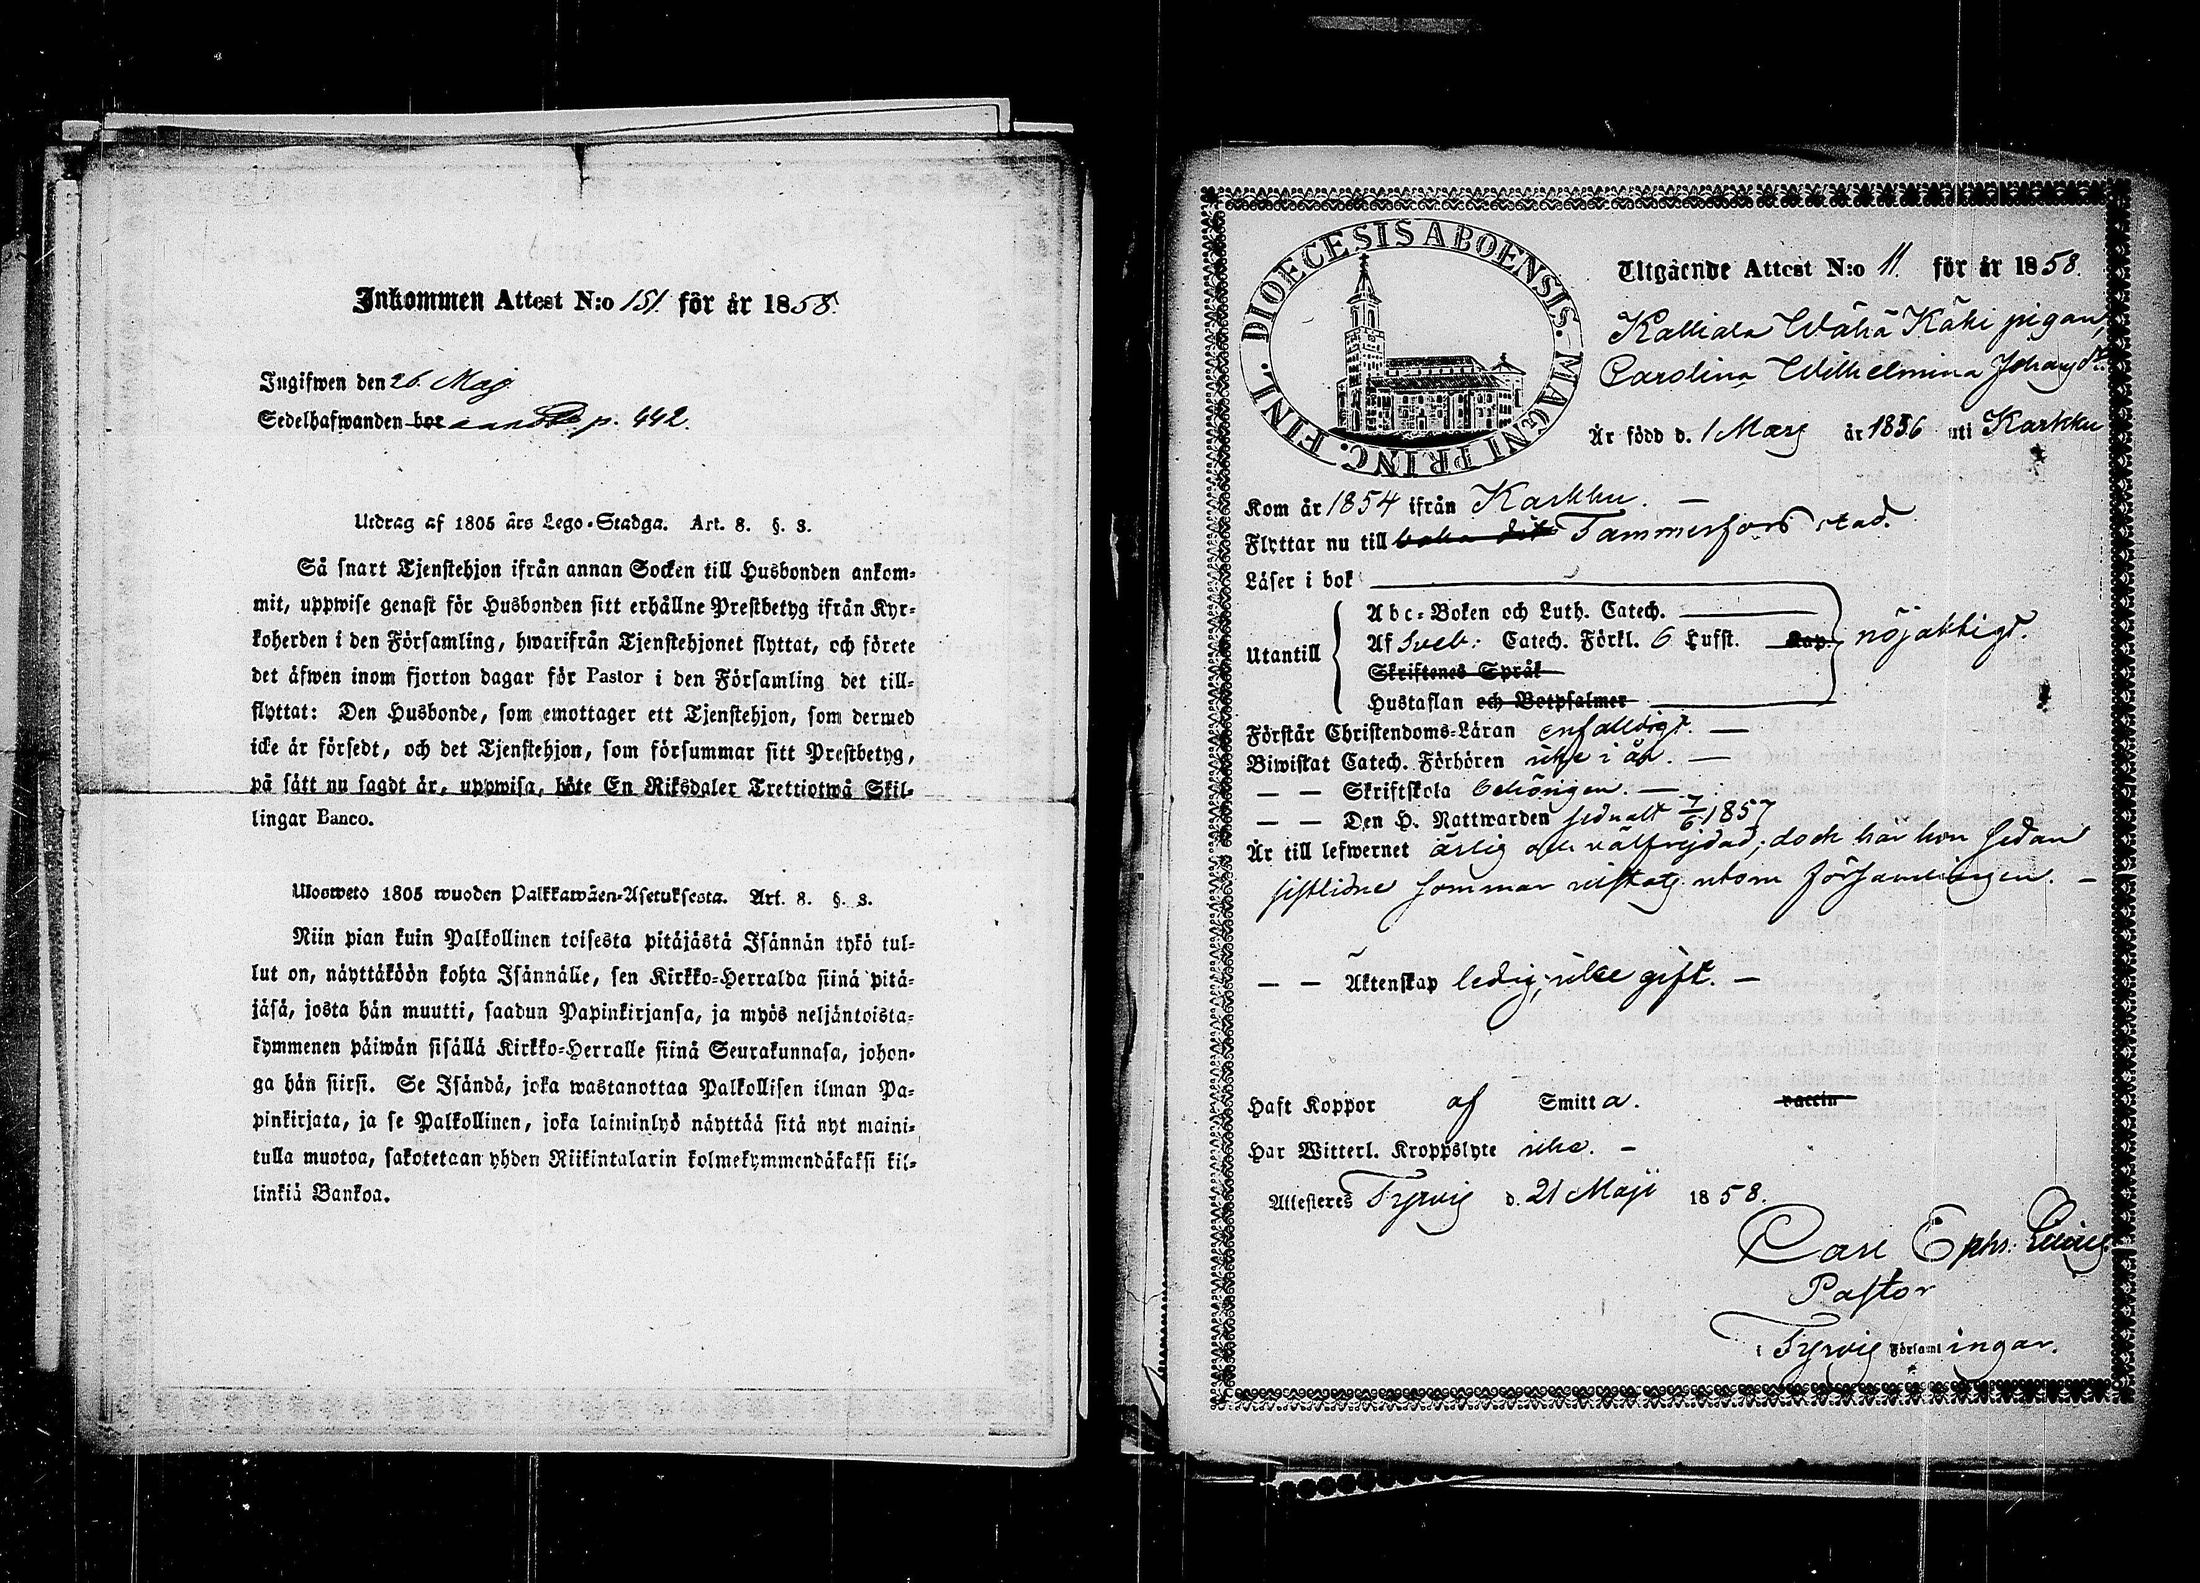 Inkommen Attest N:o 151. för år 1858.
Ingifwen den 26. Maj
Sedelhafwanden bor p. 442.
Utdrag af 1805 års Lego-Stadga. Art. 8. §. 3.
Så snart Tjenstehjon ifrån annan Socken till Husbonden ankom-
mit, uppwise genast för Husbonden sitt erhållne Prestbetyg ifrån Kyr-
koherden i den Församling, hwarifrån Tjenstehjonet flyttat, och förete
det äfwen inom fjorton dagar för Pastor i den Församling det till-
flyttat: Den Husbonde, som emottager ett Tjenstehjon, som dermed
icke är försedt, och det Tjenstehjon, som försummar sitt Prestbetyg,
på sätt nu sagdt är, uppwisa, böte En Riksdaler Trettiotwå Skil-
lingar Banco.
Ulosweto 1805 wuoden Palkkawäen-Asetuksesta. Art. 8. §. 3.
Niin pian kuin Palkollinen toisesta pitäjästä Isännän tykö tul-
lut on, näyttäköön kohta Isännälle, sen Kirkko-Herralda siinä pitä-
jäsä, josta hän muutti, saadun Papinkirjansa, ja myös neljäntoista-
kymmenen päiwän sisällä Kirkko-Herralle siinä Seurakunnasa, johon-
ga hän siirsi. Se Isändä, joka wastanottaa Palkollisen ilman Pa-
pinkirjata, ja se Palkollinen, joka laiminlyö näyttää sitä nyt maini-
tulla muotoa, sakotetaan yhden Riikintalarin kolmekymmendäkaksi kil-
linkiä Bankoa.
DIOECESIS ABOENSIS. MAGNI PRINC. FINL.
Utgående Attest N:o 11. för år 1858.
Kalliala Wähä Käki pigan,
Carolina Wilhelmina Johansdr.
Är född d. 1 Mars år 1836 uti Karkku
Kom år 1854 ifrån Karkku. —
Flyttar nu till Tammerfors stad.
Läser i bok
Abc-Boken och Luth. Catech.
Utantill Af Sveb: Catech. Förkl. 6 Lufst. Kap. nöjaktigt.
Skriftenes Språk
Hustaflan och Botpsalmer
Förstår Christendoms-Läran enfaldigt. —
Biwistat Catech. Förhören icke i år. —
— — Skriftskola behörigen. —
— — Den H. Nattwarden sednast 7/6 1857
Är till lefwernet ärlig och välfrejdad; dock har hon sedan
sistlidne sommar vistats utom församlingen. —
— — Äktenskap ledig, icke gift. —
Haft Koppor af Smitta. vaccin
Har Witterl. Kroppslyte icke. —
Attesteres Tyrvis d. 21 Maji 1858.
Carl Ephr.
Pastor
i Tyrvis Församlingar.